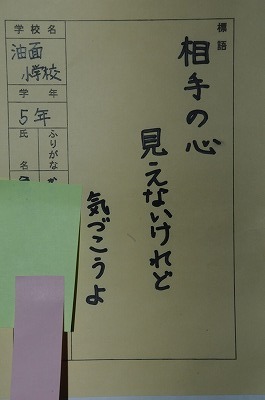 標語
相手の心
見えないけれど
気づこうよ
学校名
油面
小学校
学年
5年
ふりがな
氏名